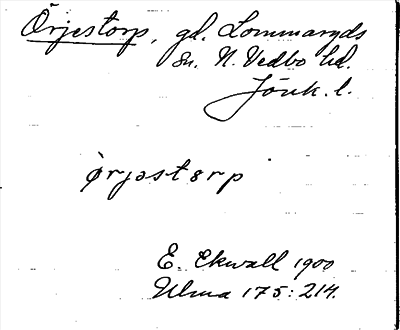 Örjestorp, gd. Lommaryds
sn. N. Vedbo hd.
Jönk. l.
örjastorp
E. Ekwall 1900
Ulma 175:214.